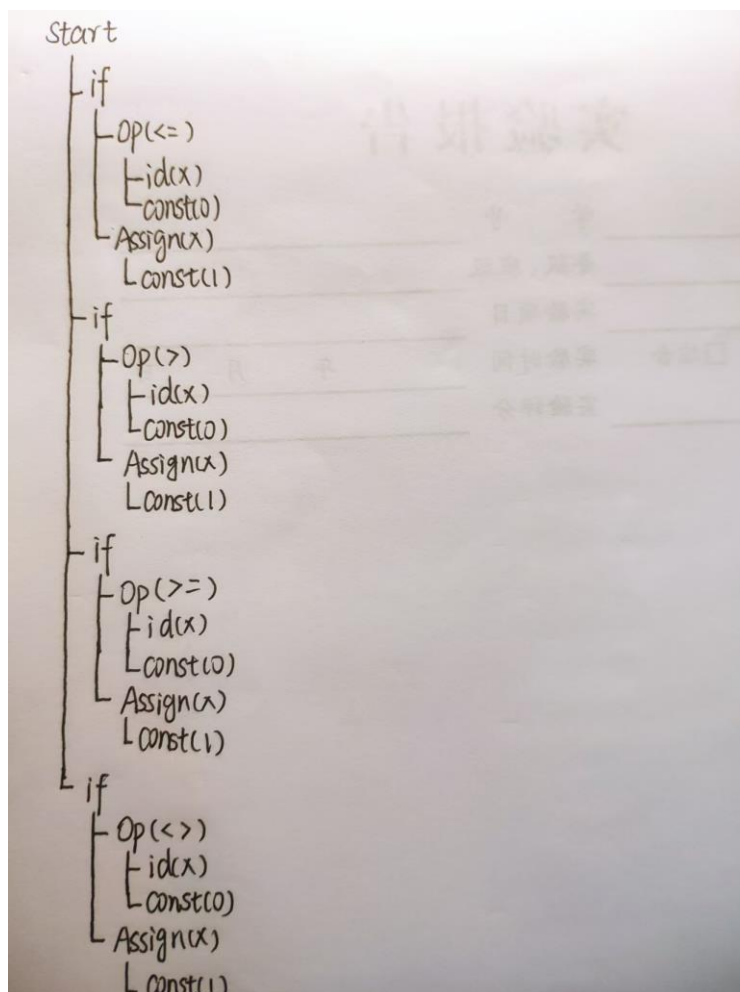 Start
if
Op(<=)
id(x)
const(0)
Assign(x)
const(1)
if
Op(>)
id(x)
const(0)
Assign(x)
const(1)
if
Op(>=)
id(x)
const(0)
Assign(x)
const(1)
if
Op(<>)
id(x)
const(0)
Assign(x)
const(1)